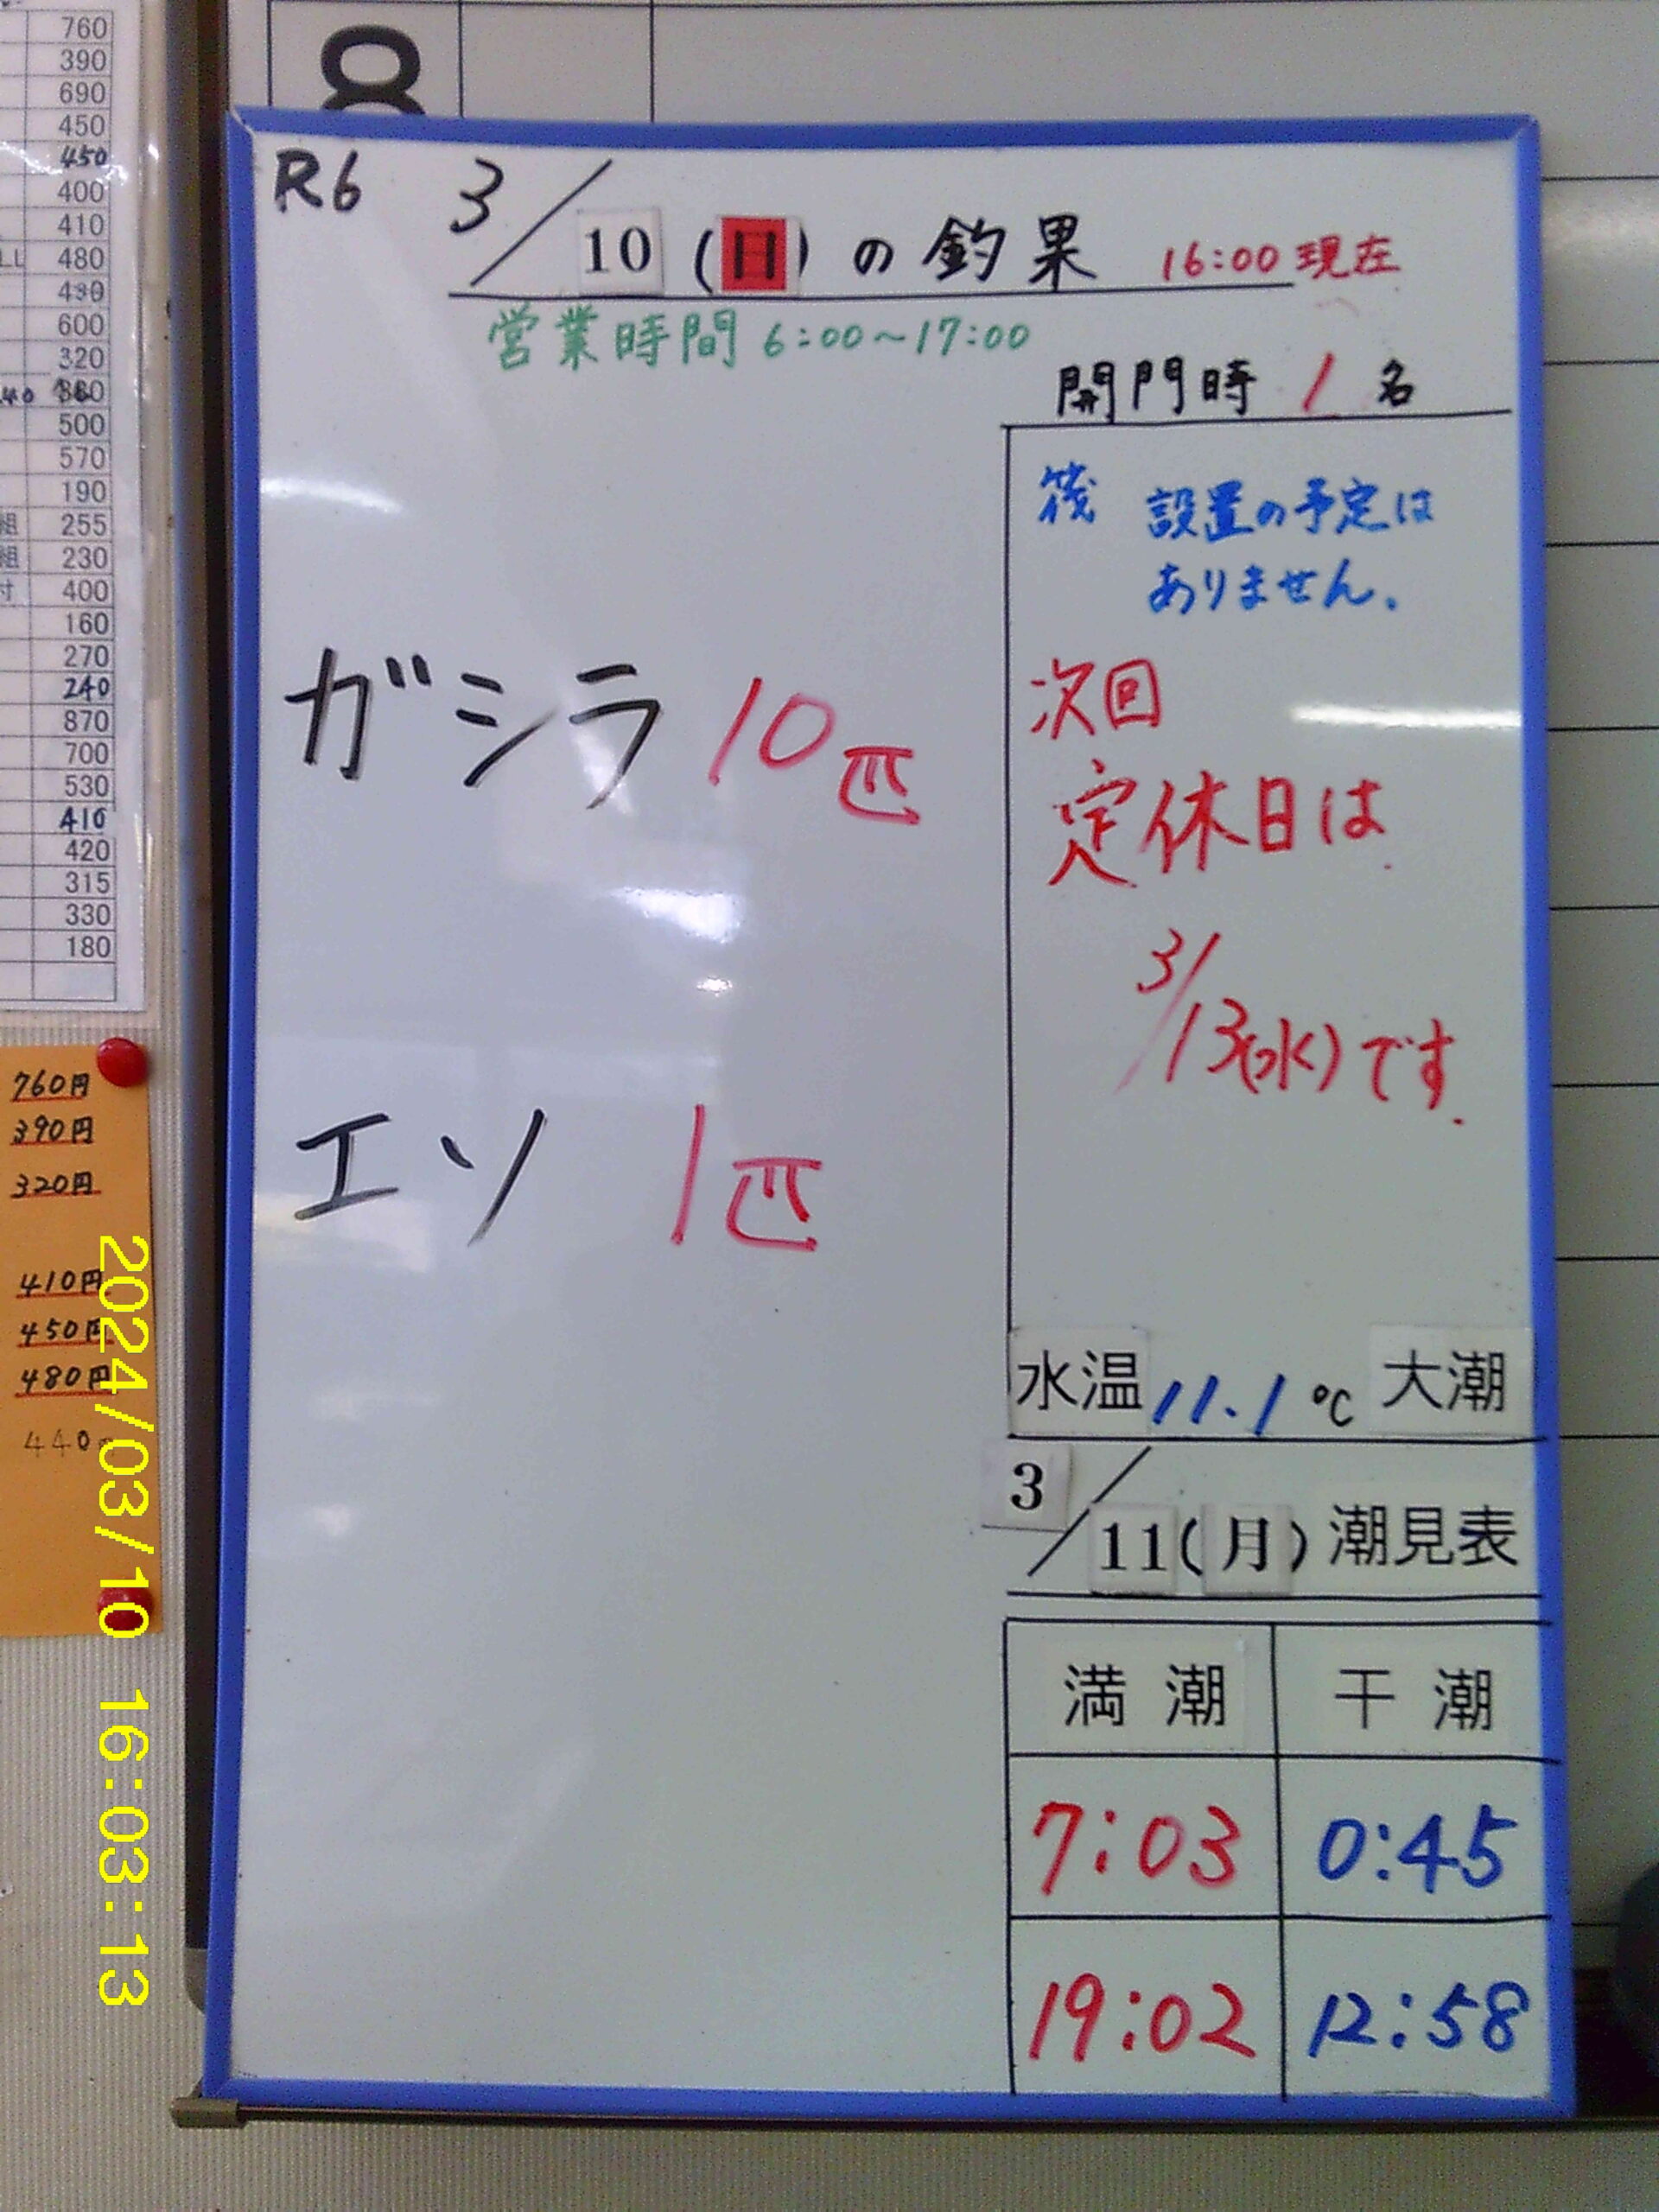 760
390
690
450
450
400
410
LL 480
490
600
320
500
570
190
組 255
組 230
付 400
160
270
240
870
700
530
410
420
315
330
180
760円
390円
320円
410円
450円
480円
440
2024/03/10 16:03:13
8
R6 3/10(日)の釣果 16:00現在
営業時間 6:00~17:00
開門時 1名
筏 設置の予定は
ありません。
次回
定休日は
3/13(水)です.
ガシラ 10匹
エソ 1匹
水温 11.1℃ 大潮
3/11(月)潮見表
満潮 干潮
7:03 0:45
19:02 12:58